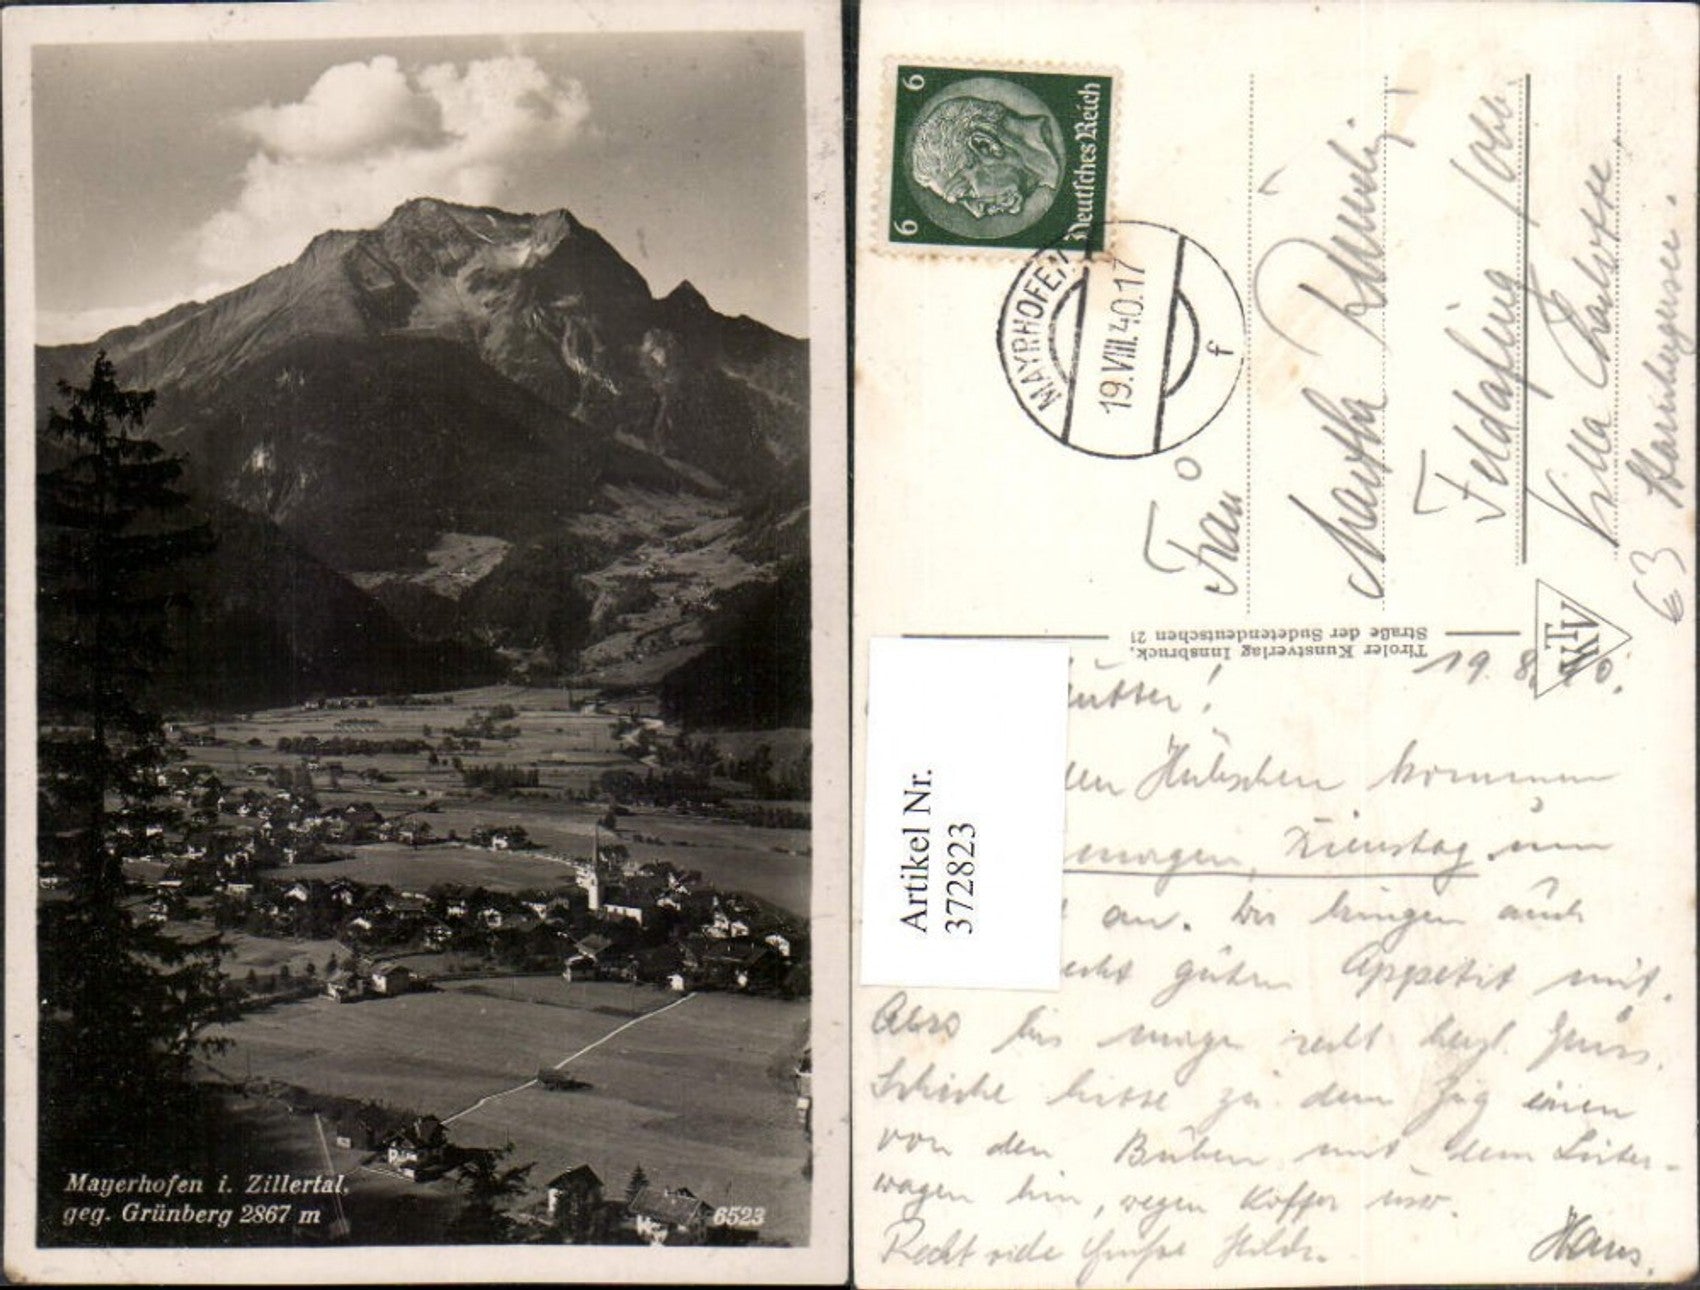 Mayerhofen i. Zillertal,
geg. Grünberg 2867 m
6523
6 6
Deutsches Reich
MAYRHOFEN
19.VIII.40.17
f
Frau
Martha
Feldafing
Villa Charlotte
Starnbergersee.
63
Tiroler Kunstverlag Innsbruck,
Straße der Sudetendeutschen 21
KTV
Artikel Nr.
372823
19. 8. 40.
utter!
den Hübschen kommen
morgen, Dienstag um
an. Wir bringen auch
echt guten Appetit mit.
Also bis morgen recht herzl. Gruss.
Schicke bitte zu dem Zug einen
von den Buben mit dem Leiter-
wagen hin, wegen Koffer usw.
Recht viele Grüße Hilde.
Hans.